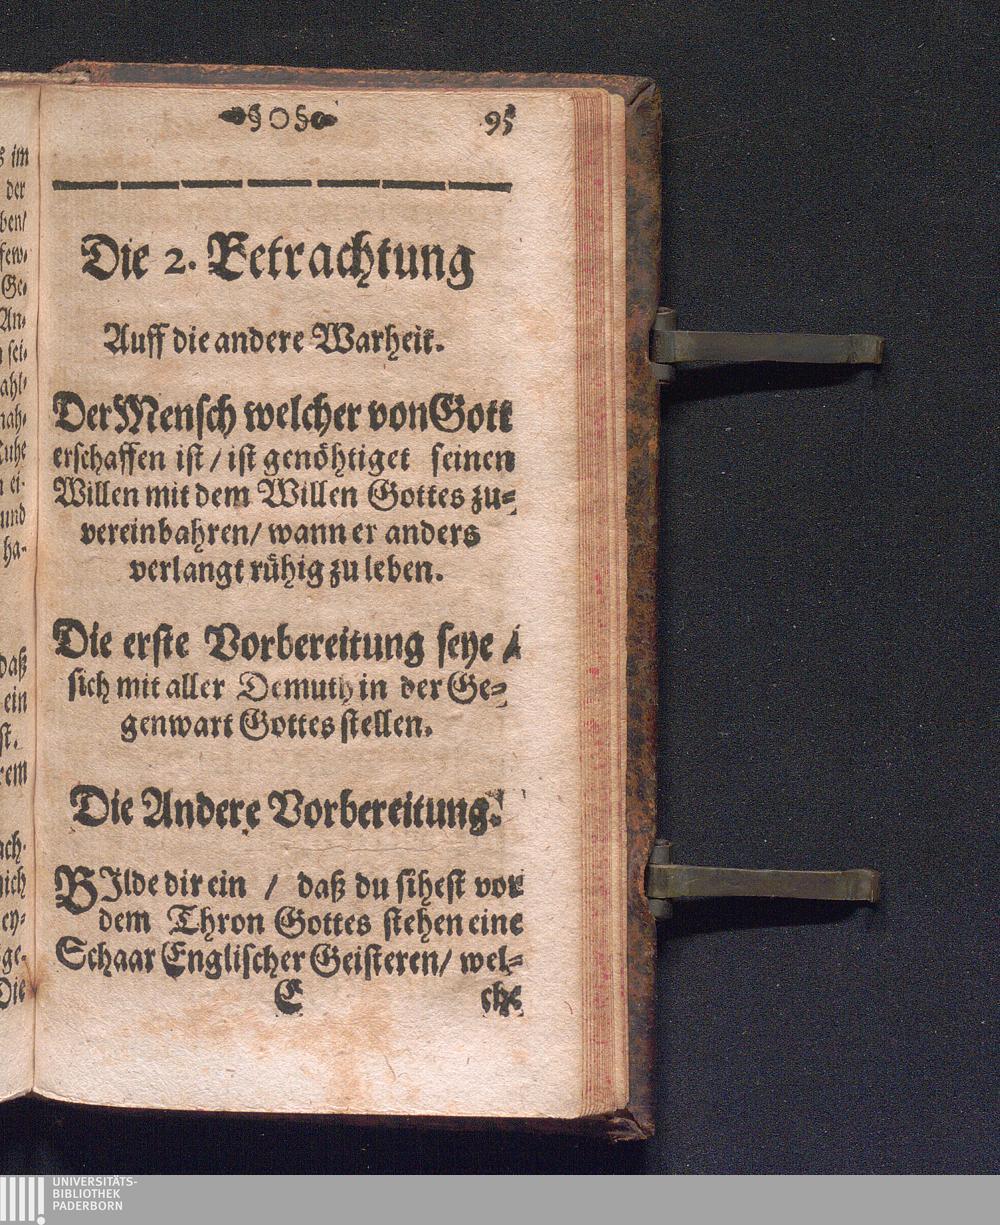 s im
der
ben/
few-
Ge-
An-
sei-
aht-
nah-
Ruhe
n ei-
und
ha-
daß
ein
st.
rem
ach-
mich
ey-
ge-
Die
§O§ 95
Die 2. Betrachtung
Auff die andere Warheit.
Der Mensch welcher von Gott
erschaffen ist / ist genöhtiget seinen
Willen mit dem Willen Gottes zu-
vereinbahren / wann er anders
verlangt rühig zu leben.
Die erste Vorbereitung seye /
sich mit aller Demuth in der Ge-
genwart Gottes stellen.
Die Andere Vorbereitung.
BIlde dir ein / daß du sihest vor
dem Thron Gottes stehen eine
Schaar Englischer Geisteren / wel-
E che
UNIVERSITÄTS-
BIBLIOTHEK
PADERBORN